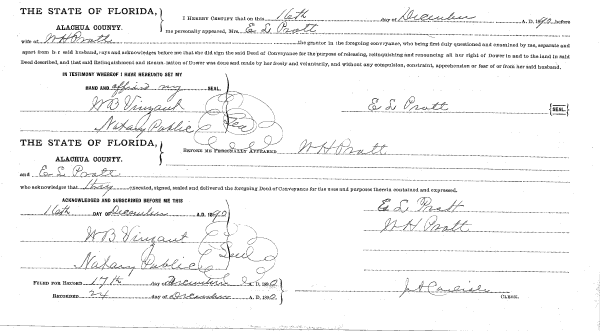 THE STATE OF FLORIDA,
ALACHUA COUNTY.
I HEREBY CERTIFY that on this 16th day of December A. D. 1890, before
me personally appeared, Mrs. E L Pratt
wife of W H Pratt the grantor in the foregoing conveyance, who being first duly questioned and examined by me, separate and
apart from her said husband, says and acknowledges before me that she did sign the said Deed of Conveyance for the purpose of releasing, relinquishing and renouncing all her right of Dower in and to the land in said
Deed described, and that said Relinquishment and Renunciation of Dower was done and made by her freely and voluntarily, and without any compulsion, constraint, apprehension or fear of or from her said husband.
IN TESTIMONY WHEREOF I HAVE HEREUNTO SET MY
HAND AND affixed my SEAL.
W B Vinzant
E L Pratt {SEAL}
Notary Public
Seal
THE STATE OF FLORIDA,
ALACHUA COUNTY.
BEFORE ME PERSONALLY APPEARED W H Pratt
and E L Pratt
who acknowledges that they executed, signed, sealed and delivered the foregoing Deed of Conveyance for the uses and purposes therein contained and expressed.
ACKNOWLEDGED AND SUBSCRIBED BEFORE ME THIS
16th DAY OF December A. D. 1890
E L Pratt
W H Pratt
W B Vinzant
Seal
Notary Public
FILED FOR RECORD 17th day of December A. D. 1890.
RECORDED 24 day of December A. D. 1890.
J A Carlisle
CLERK.